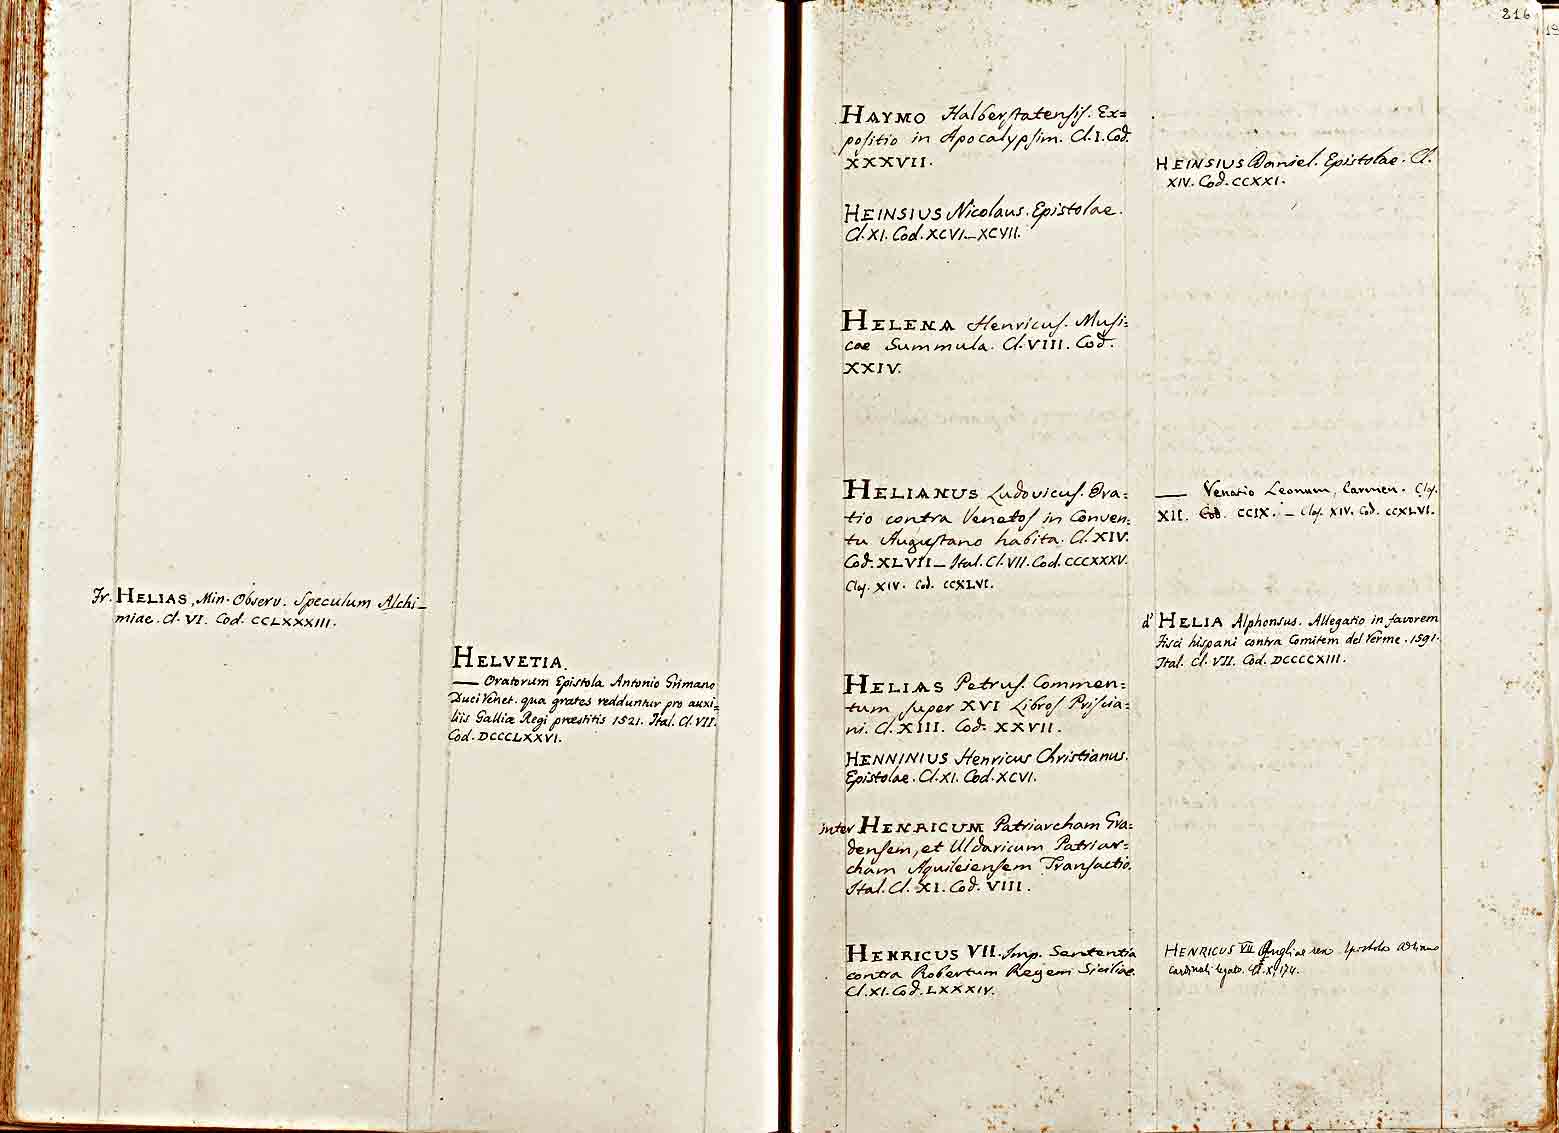 Fr. HELIAS, Min. Observ. Speculum Alchi-
miae. Cl. VI. Cod. CCLXXXIII.
HELVETIA.
— Oratorum Epistola Antonio Grimano
Duci Venet. qua grates redduntur pro auxi=
liis Galliæ Regi præstitis 1521. Ital. Cl. VII.
Cod. DCCCLXXVI.
216
HAYMO Halberstatensis. Ex=
positio in Apocalypsim. Cl. I. Cod.
XXXVII.
HEINSIUS Nicolaus. Epistolae.
Cl. XI. Cod. XCVI_XCVII.
HELENA Henricus. Musi=
cae Summula. Cl. VIII. Cod.
XXIV.
HELIANUS Ludovicus. Ora=
tio contra Venetos in Conven=
tu Augustano habita. Cl. XIV.
Cod. XLVII_ Ital. Cl. VII. Cod. CCCXXXV.
Clas. XIV. Cod. CCXLVI.
HELIAS Petrus. Commen=
tum super XVI Libros Priscia=
ni. Cl. XIII. Cod. XXVII.
HENNINIUS Henricus Christianus.
Epistolae. Cl. XI. Cod. XCVI.
inter HENRICUM Patriarcham Gra=
densem, et Uldaricum Patriar=
cham Aquileiensem Transactio.
Ital. Cl. XI. Cod. VIII.
HENRICUS VII. Imp. Sententia
contra Robertum Regem Siciliae.
Cl. XI. Cod. LXXXIV.
HEINSIUS Daniel. Epistolae. Cl.
XIV. Cod. CCXXI.
— Venatio Leonum, Carmen. Clas.
XII. Cod. CCIX. _ Clas. XIV. Cod. CCXLVI.
d' HELIA Alphonsus. Allegatio in favorem
Fisci hispani contra Comitem del Verme. 1591.
Ital. Cl. VII. Cod. DCCCCXIII.
HENRICUS VII Angliae rex. Epistola Adriano
Cardinali legato. Cl. X, 174.